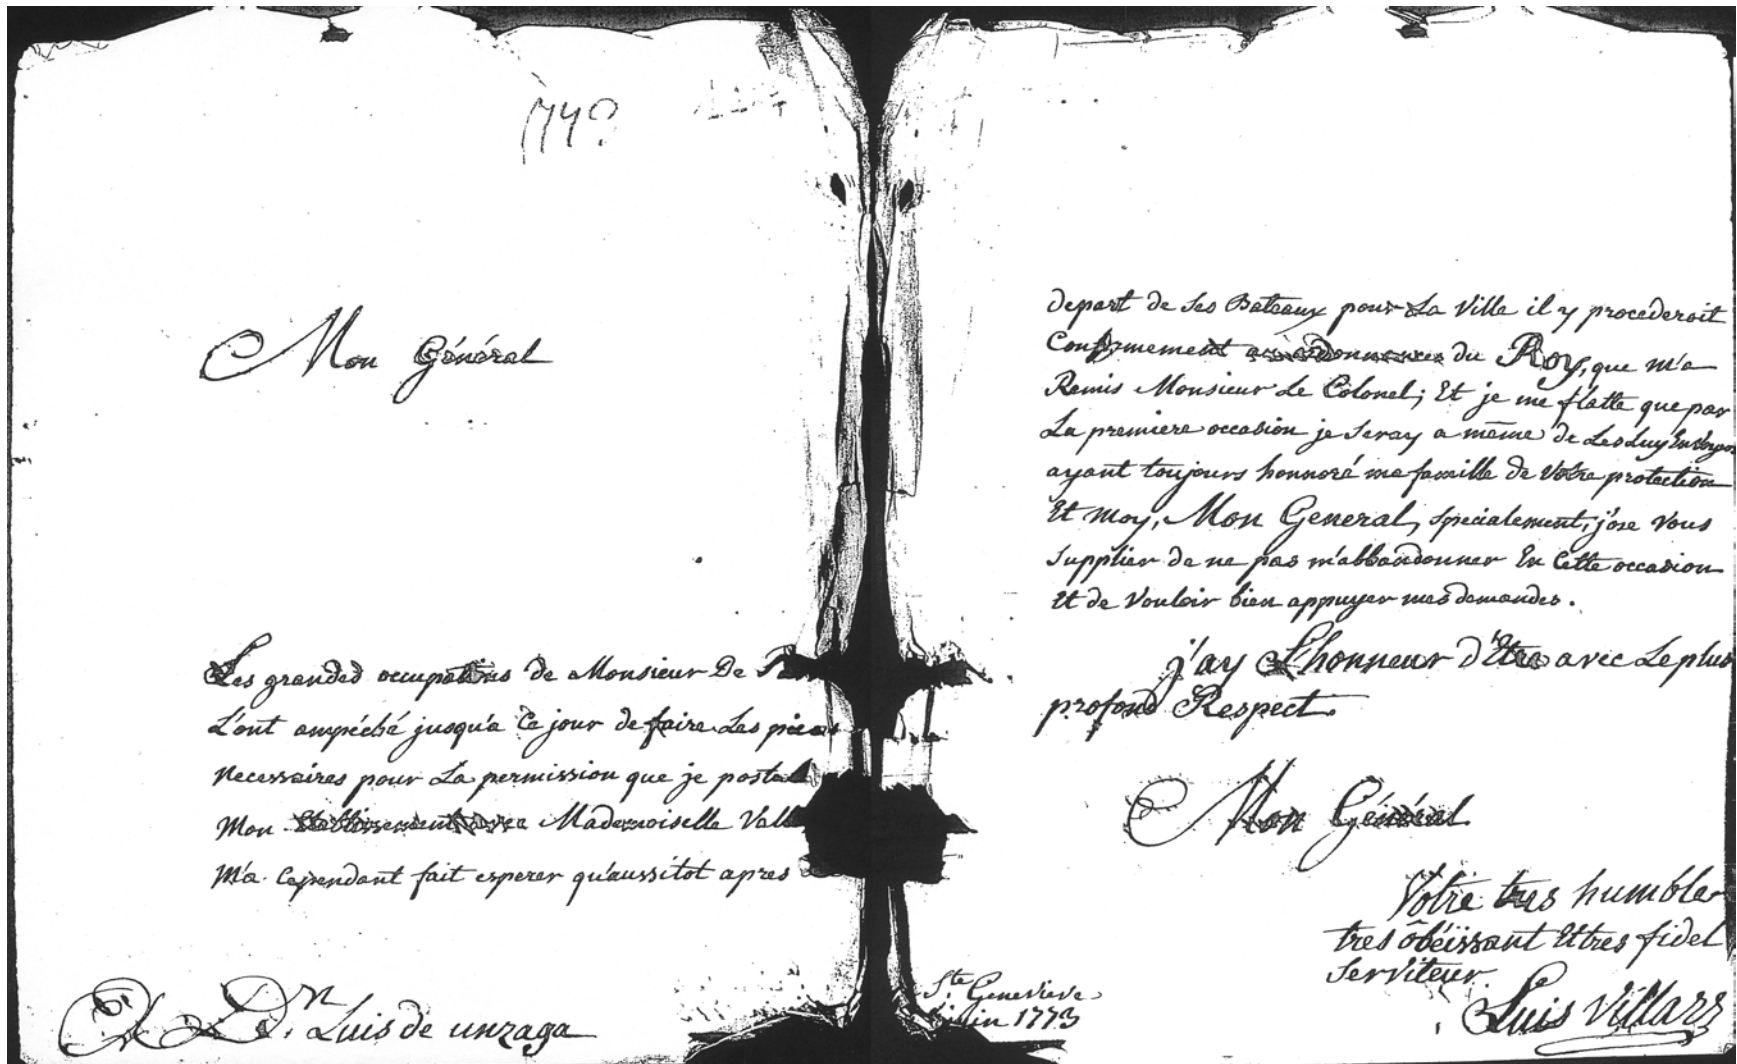 Mon Général
Les grandes occupations de Monsieur De
L'ont ampéché jusqu'a Ce jour de faire Les pieces
Necessaires pour La permission que je
Mon Etablissement avec Mademoiselle
M'a Cependant fait esperer qu'aussitot apres
A Dn. Luis de unzaga
depart de Ses Bateaux pour La Ville il y procederoit
Conformement aux ordonnances du Roy, que m'a
Remis Monsieur Le Colonel; Et je me flatte que par
La premiere occasion je Seray a même de Les Luy Envoyer
ayant toujours honnoré ma famille de Votre protection
Et moy, Mon General, specialement, j'ose Vous
Supplier de ne pas m'abbandonner En Cette occasion
Et de Vouloir bien appuyer mes demandes.
j'ay L'honneur d'Etre avec Le plus
profond Respect.
Mon Général
Votre tres humble
tres obéissant Et tres fidel
Serviteur.
Ste Genevieve
juin 1773
Luis Villars